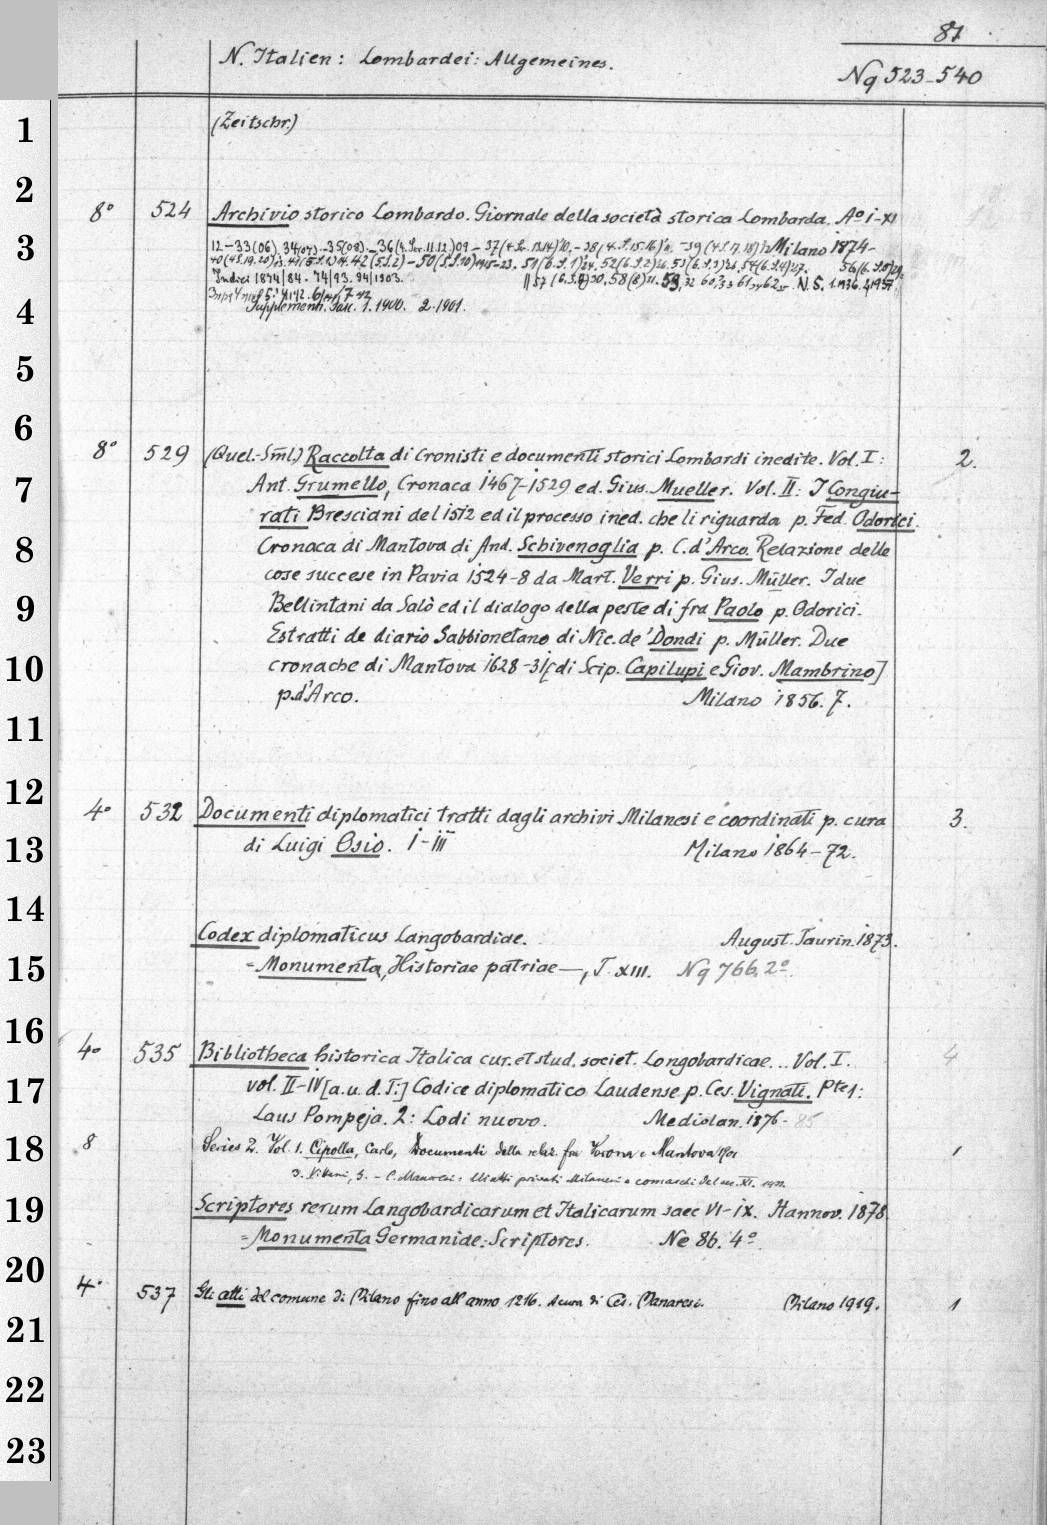 81
N. Italien: Lombardei: Allgemeines.
Nq 523-540
1
(Zeitschr.)
2
8° 524 Archivio storico Lombardo. Giornale della società storica Lombarda. A° I-XI
3
12-33(06) 34(07) -35(08). -36(4. Ser. 11.12) 09 - 37(4 Ser. 13.14) 10. -38(4. S. 15.16) 11. -39(4 S. 17.18) 12 Milano 1874-
40(4 S. 19.20) 13. 41(5 S. 1) 14. 42(5. S. 2) - 50(5. S. 10) 1915-23. 51(6. S. 1) 24. 52(6. S. 2) 25. 53(6. S. 3) 26. 54(6. S. 4) 27. 56(6. S. 6) 29.
Indici 1874/84. 74/93. 94/1903. // 57 (6. S. 7) 30. 58(8) 31. 59, 32 60, 33 61, 34 62 35 N. S. 1. 1936. 4, 1937.
4
Supplement. Fasc. 1. 1900. 2. 1901.
5
6
8° 529 (Quel.-Sml.) Raccolta di Cronisti e documenti storici Lombardi inedite. Vol. I: 2.
7
Ant. Grumello, Cronaca 1467-1529 ed. Gius. Mueller. Vol. II: I Congiu-
rati Bresciani del 1512 ed il processo ined. che li riguarda p. Fed. Odorici.
8
Cronaca di Mantova di And. Schivenoglia p. C. d'Arco. Relazione delle
cose successe in Pavia 1524-8 da Mart. Verri p. Gius. Müller. I due
9
Bellintani da Salò ed il dialogo della peste di fra Paolo p. Odorici.
Estratti de diario Sabbionetano di Nic. de' Dondi p. Müller. Due
10
cronache di Mantova 1628-31 [di Scip. Capilupi e Giov. Mambrino]
p. d'Arco. Milano 1856. 7.
11
12
4° 532 Documenti diplomatici tratti dagli archivi Milanesi e coordinati p. cura 3.
13
di Luigi Osio. I-III Milano 1864-72.
14
Codex diplomaticus Langobardiae. August. Taurin. 1873.
15
= Monumenta, Historiae patriae —, T. XIII. Nq 766, 2°.
16
4° 535 Bibliotheca historica Italica cur. et stud. societ. Longobardicae... Vol. I. 4
17
vol. II-IV [a. u. d. T.:] Codice diplomatico Laudense p. Ces. Vignati. Pte 1:
Laus Pompeja. 2: Lodi nuovo. Mediolan. 1876-85
18
8 Series 2. Vol. 1. Cipolla, Carlo, Documenti della relaz. fra Verona e Mantova 1
3. Vittani, G. - C. Manaresi: Gli atti privati Milanesi e comaschi del sec. XI. 1933.
19
Scriptores rerum Langobardicarum et Italicarum saec VI-IX. Hannov. 1878.
= Monumenta Germaniae: Scriptores. Ne 86. 4°.
20
4° 537 Gli atti del comune di Milano fino all'anno 1216. a cura di Ces. Manaresi. Milano 1919. 1
21
22
23